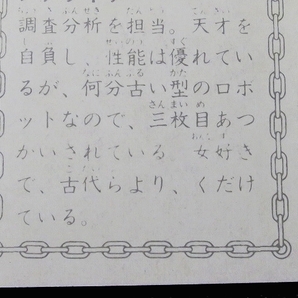 調査分析を担当。天才を
自負し、性能は優れてい
るが、何分古い型のロボ
ットなので、三枚目あつ
かいされている 女好き
で、古代らより、くだけ
ている。